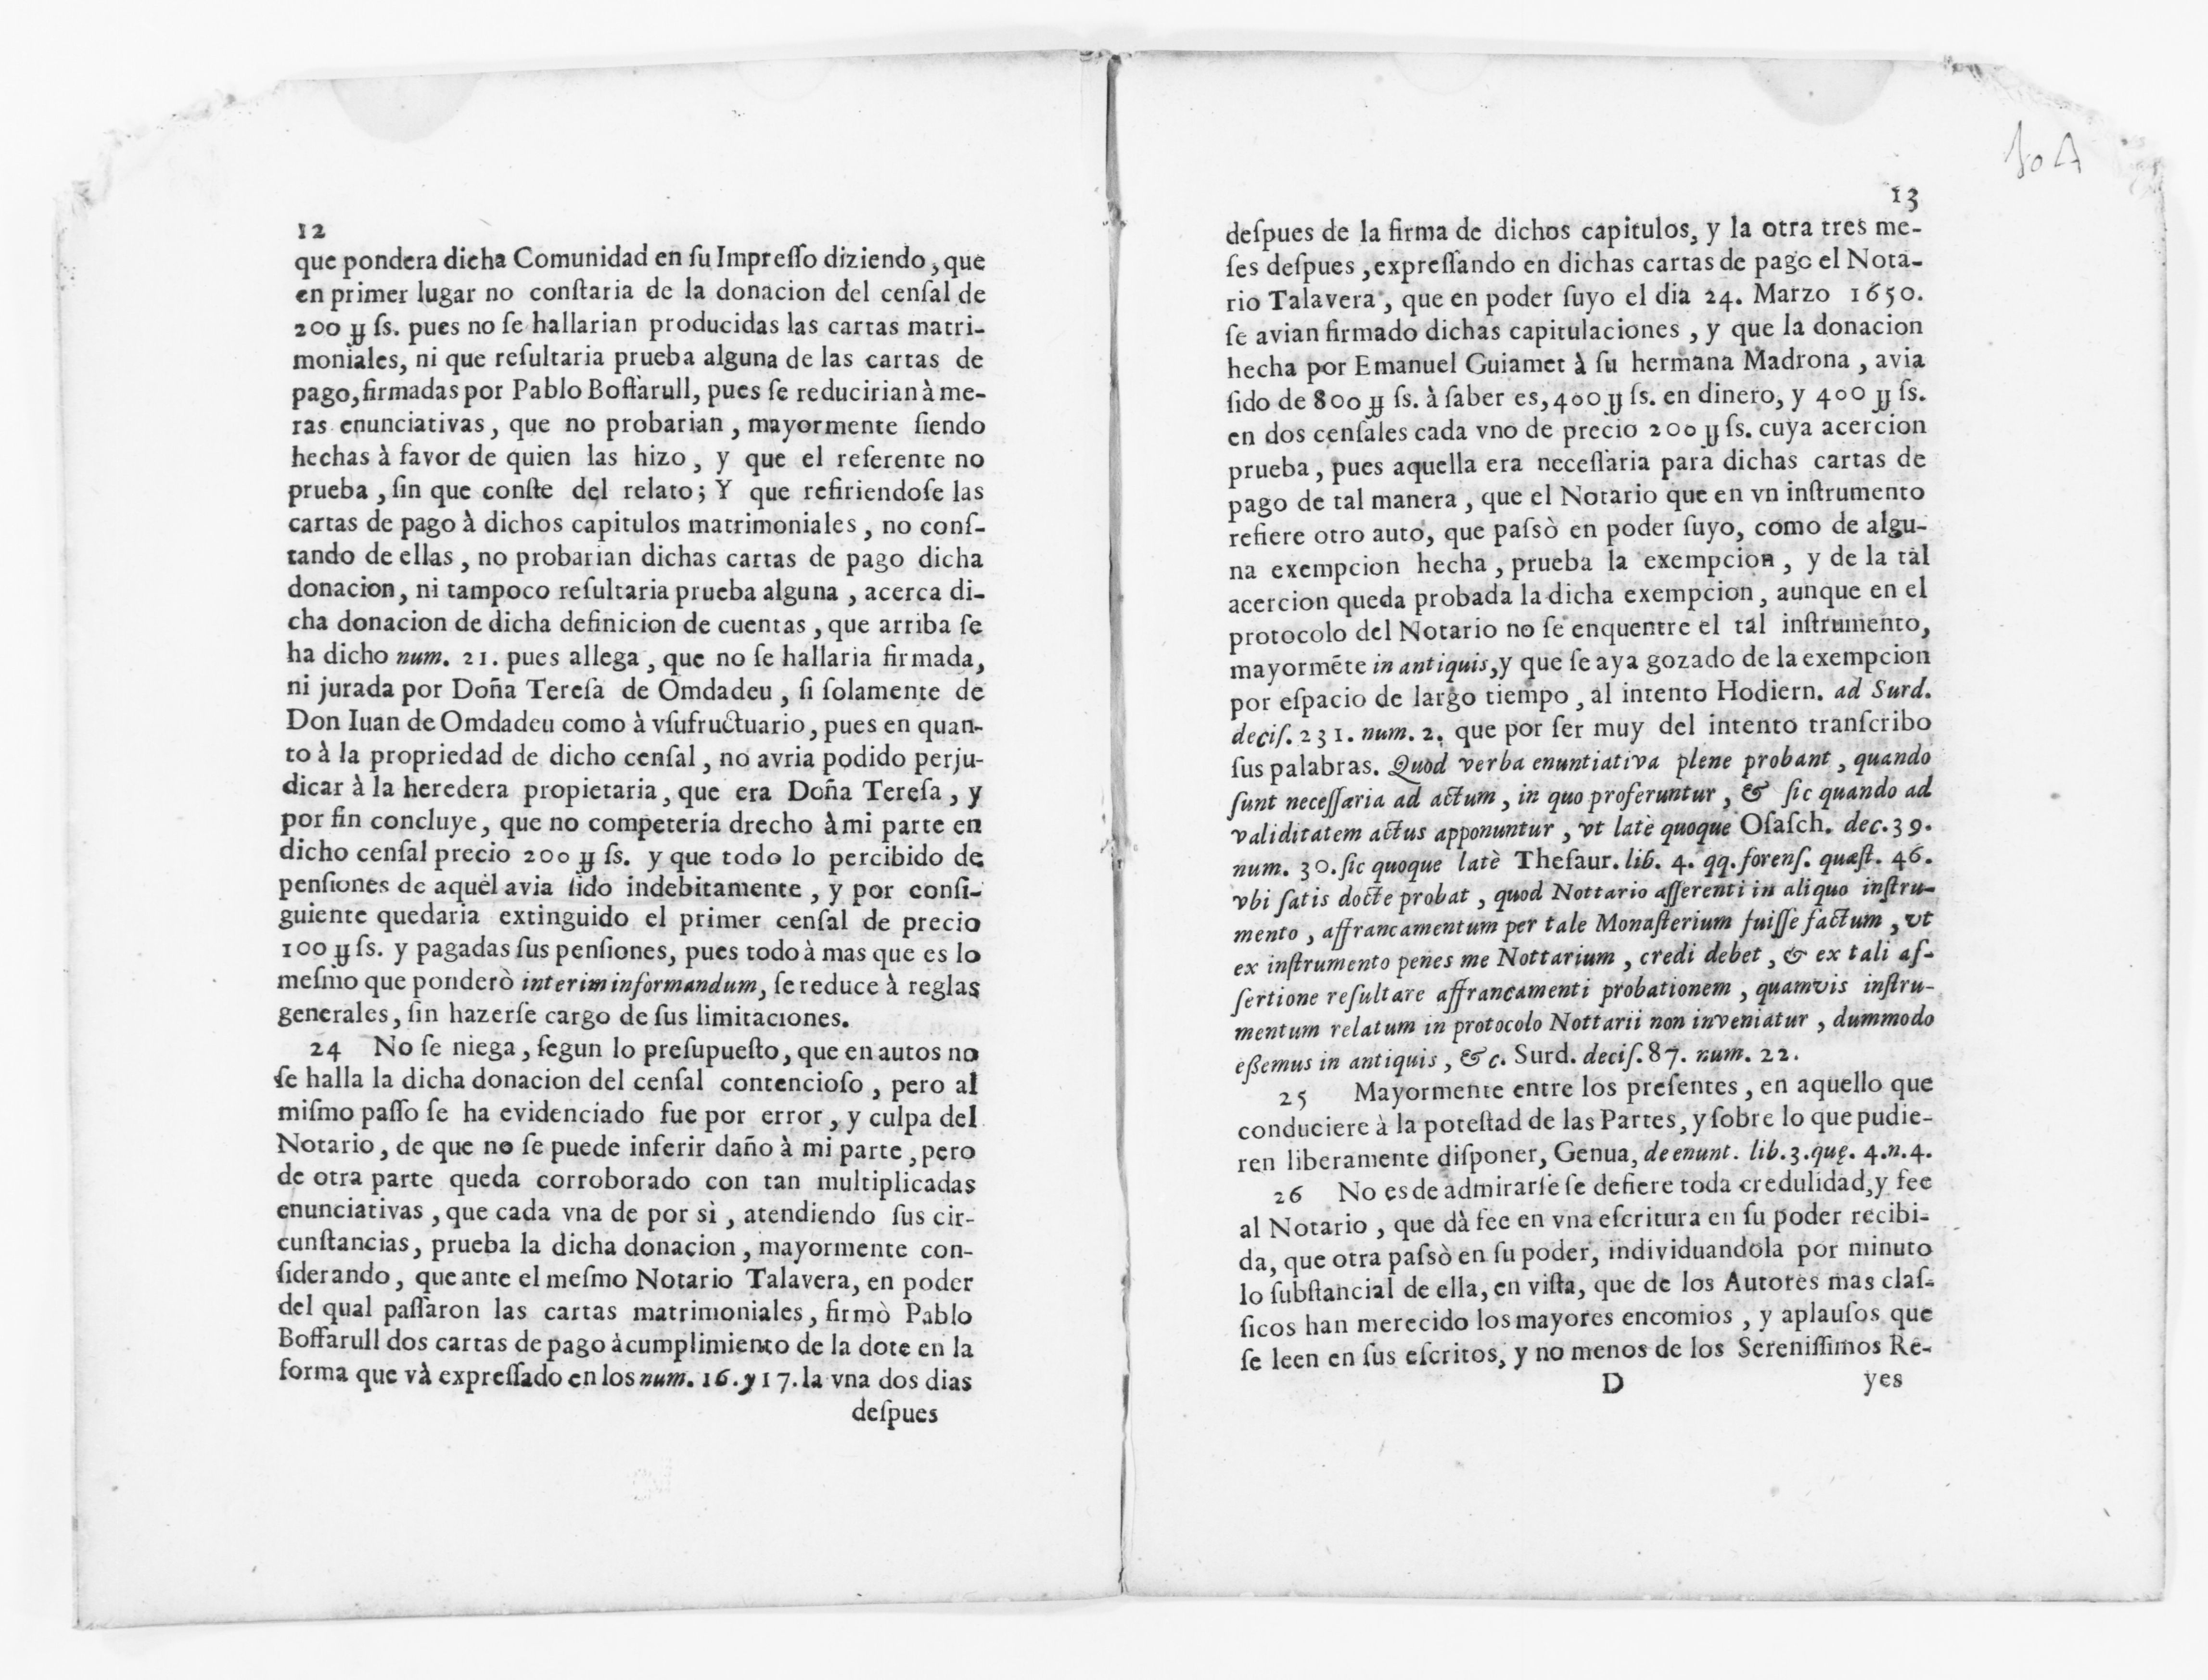 12
que pondera dicha Comunidad en ſu Impreſſo diziendo, que
en primer lugar no conſtaria de la donacion del cenſal de
200 ꝟ ſs. pues no ſe hallarian producidas las cartas matri-
moniales, ni que reſultaria prueba alguna de las cartas de
pago, firmadas por Pablo Boffarull, pues ſe reducirian à me-
ras enunciativas, que no probarian, mayormente ſiendo
hechas à favor de quien las hizo, y que el referente no
prueba, ſin que conſte del relato; Y que refiriendoſe las
cartas de pago à dichos capitulos matrimoniales, no conſ-
tando de ellas, no probarian dichas cartas de pago dicha
donacion, ni tampoco reſultaria prueba alguna, acerca di-
cha donacion de dicha definicion de cuentas, que arriba ſe
ha dicho num. 21. pues allega, que no ſe hallaria firmada,
ni jurada por Doña Tereſa de Omdadeu, ſi ſolamente de
Don Iuan de Omdadeu como à vſufructuario, pues en quan-
to à la propriedad de dicho cenſal, no avria podido perju-
dicar à la heredera propietaria, que era Doña Tereſa, y
por fin concluye, que no competeria drecho à mi parte en
dicho cenſal precio 200 ꝟ ſs. y que todo lo percibido de
penſiones de aquel avia ſido indebitamente, y por conſi-
guiente quedaria extinguido el primer cenſal de precio
100 ꝟ ſs. y pagadas ſus penſiones, pues todo à mas que es lo
meſmo que ponderò interim informandum, ſe reduce à reglas
generales, ſin hazerſe cargo de ſus limitaciones.
24 No ſe niega, ſegun lo preſupueſto, que en autos no
ſe halla la dicha donacion del cenſal contencioſo, pero al
miſmo paſſo ſe ha evidenciado fue por error, y culpa del
Notario, de que no ſe puede inferir daño à mi parte, pero
de otra parte queda corroborado con tan multiplicadas
enunciativas, que cada vna de por sì, atendiendo ſus cir-
cunſtancias, prueba la dicha donacion, mayormente con-
ſiderando, que ante el meſmo Notario Talavera, en poder
del qual paſſaron las cartas matrimoniales, firmò Pablo
Boffarull dos cartas de pago à cumplimiento de la dote en la
forma que và expreſſado en los num. 16. y 17. la vna dos dias
deſpues
13
deſpues de la firma de dichos capitulos, y la otra tres me-
ſes deſpues, expreſſando en dichas cartas de pago el Nota-
rio Talavera, que en poder ſuyo el dia 24. Marzo 1650.
ſe avian firmado dichas capitulaciones, y que la donacion
hecha por Emanuel Guiamet à ſu hermana Madrona, avia
ſido de 800 ꝟ ſs. à ſaber es, 400 ꝟ ſs. en dinero, y 400 ꝟ ſs.
en dos cenſales cada vno de precio 200 ꝟ ſs. cuya acercion
prueba, pues aquella era neceſſaria para dichas cartas de
pago de tal manera, que el Notario que en vn inſtrumento
refiere otro auto, que paſsò en poder ſuyo, como de algu-
na exempcion hecha, prueba la exempcion, y de la tal
acercion queda probada la dicha exempcion, aunque en el
protocolo del Notario no ſe enquentre el tal inſtrumento,
mayormẽte in antiquis, y que ſe aya gozado de la exempcion
por eſpacio de largo tiempo, al intento Hodiern. ad Surd.
deciſ. 231. num. 2. que por ſer muy del intento tranſcribo
ſus palabras. Quod verba enuntiativa plene probant, quando
ſunt neceſſaria ad actum, in quo proferuntur, & ſic quando ad
validitatem actus apponuntur, vt latè quoque Oſaſch. dec. 39.
num. 30. ſic quoque latè Theſaur. lib. 4. qq. forenſ. quæſt. 46.
vbi ſatis docte probat, quod Nottario aſſerenti in aliquo inſtru-
mento, affrancamentum per tale Monaſterium fuiſſe factum, vt
ex inſtrumento penes me Nottarium, credi debet, & ex tali aſ-
ſertione reſultare affrancamenti probationem, quamvis inſtru-
mentum relatum in protocolo Nottarii non inveniatur, dummodo
eßemus in antiquis, &c. Surd. deciſ. 87. num. 22.
25 Mayormente entre los preſentes, en aquello que
conduciere à la poteſtad de las Partes, y ſobre lo que pudie-
ren liberamente diſponer, Genua, de enunt. lib. 3. quę. 4. n. 4.
26 No es de admirarſe ſe defiere toda credulidad, y fee
al Notario, que dà fee en vna eſcritura en ſu poder recibi-
da, que otra paſsò en ſu poder, individuandola por minuto
lo ſubſtancial de ella, en viſta, que de los Autores mas claſ-
ſicos han merecido los mayores encomios, y aplauſos que
ſe leen en ſus eſcritos, y no menos de los Sereniſſimos Re-
D yes